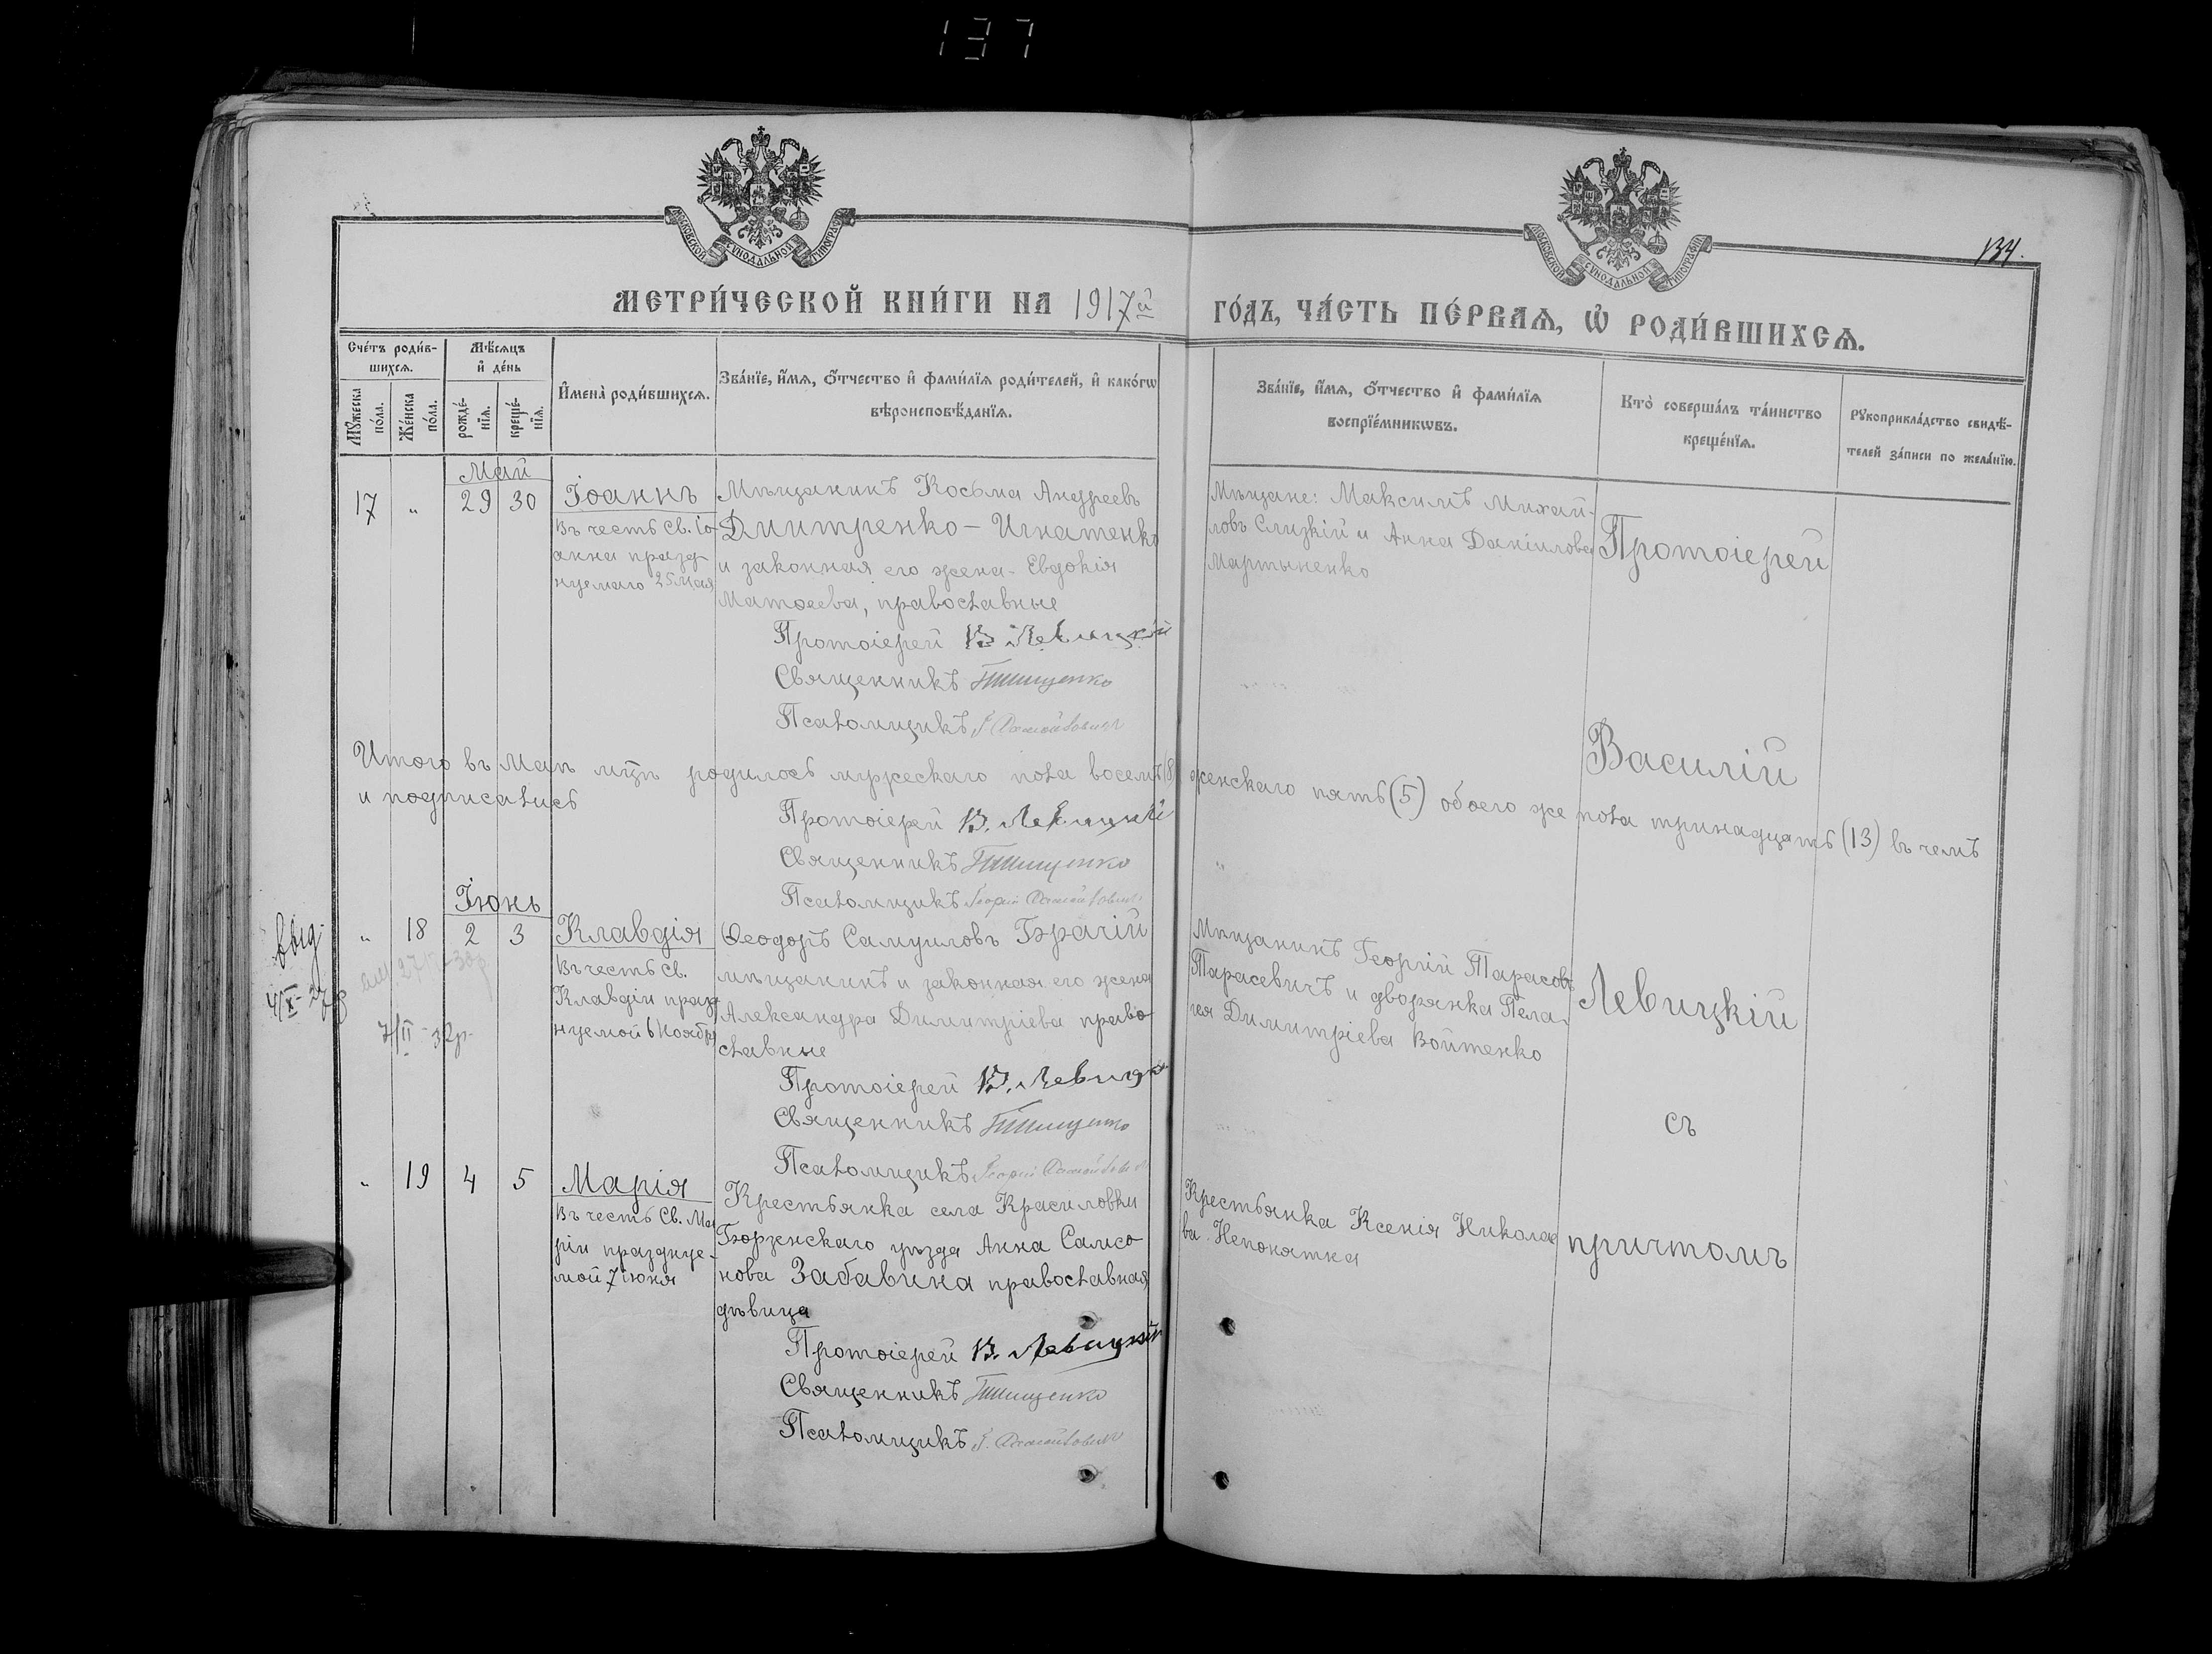 137
МОСКОВСКОЙ СѴНОДАЛЬНОЙ ТИПОГРАФІИ
МОСКОВСКОЙ СѴНОДАЛЬНОЙ ТИПОГРАФІИ
134.
МЕТРИ́ЧЕСКОЙ КНИ́ГИ НА 1917й ГО́ДЪ, ЧА́СТЬ ПЕ́РВАѦ, Ѽ РОДИ́ВШИХСѦ.
Сче́тъ роди́в-
шихсѧ.
Мꙋ́жеска по́ла.
Же́нска по́ла.
Мѣ́сѧцъ
и҆ де́нь
рожде́-
нїѧ.
креще́-
нїѧ.
И҆мена̀ роди́вшихсѧ.
Зва́нїе, и҆́мѧ, ѻ҆́тчество и҆ фами́лїѧ роди́телей, и҆ како́гѡ
вѣроисповѣ́данїѧ.
Зва́нїе, и҆́мѧ, ѻ҆́тчество и҆ фами́лїѧ
воспрїе́мникѡвъ.
Кто̀ соверша́лъ та́инство
креще́нїѧ.
Рꙋкоприкла́дство свидѣ́-
телей за́писи по жела́нїю.
Май
17 " 29 30
Іоаннъ
Въ честь Св. Іо-
анна празд-
нуемаго 25 Мая
Мѣщанинъ Косьма Андреевъ
Дмитренко - Игнатенко
и законная его жена - Евдокія
Матѳеева, православные
Протоіерей В. Левицкій
Священникъ Тишенко
Псаломщикъ
Мѣщане: Максимъ Михай-
ловъ Слизкій и Анна Даніилова
Мартыненко
Протоіерей
Василій
Левицкій
съ
причтомъ
Итого въ Маѣ мцѣ родилось мужескаго пола восемь (8) женскаго пять (5) обоего же пола тринадцать (13) въ чемъ
и подписались
Протоіерей В. Левицкій
Священникъ Тишенко
Псаломщикъ Георгій
Іюнь
выд.
" 18 2 3
Клавдія
Въ честь Св.
Клавдіи празд-
нуемой 6 Ноября
7/II-32р.
Ѳеодоръ Самуиловъ Брагій
мѣщанинъ и законная его жена
Александра Димитріева право-
славные
Протоіерей В. Левицкій
Священникъ Тишенко
Псаломщикъ Георгій
Мѣщанинъ Георгій Тарасовъ
Тарасевичъ и дворянка Пела-
гея Димитріева Войтенко
" 19 4 5
Марія
Въ честь Св. Ма-
ріи празднуе-
мой 7 іюня
Крестьянка села Красиловки
Борзенскаго уѣзда Анна Самсо-
нова Забавина православная
дѣвица
Протоіерей В. Левицкій
Священникъ Тишенко
Псаломщикъ Г.
Крестьянка Ксенія Николае-
ва Непонятка